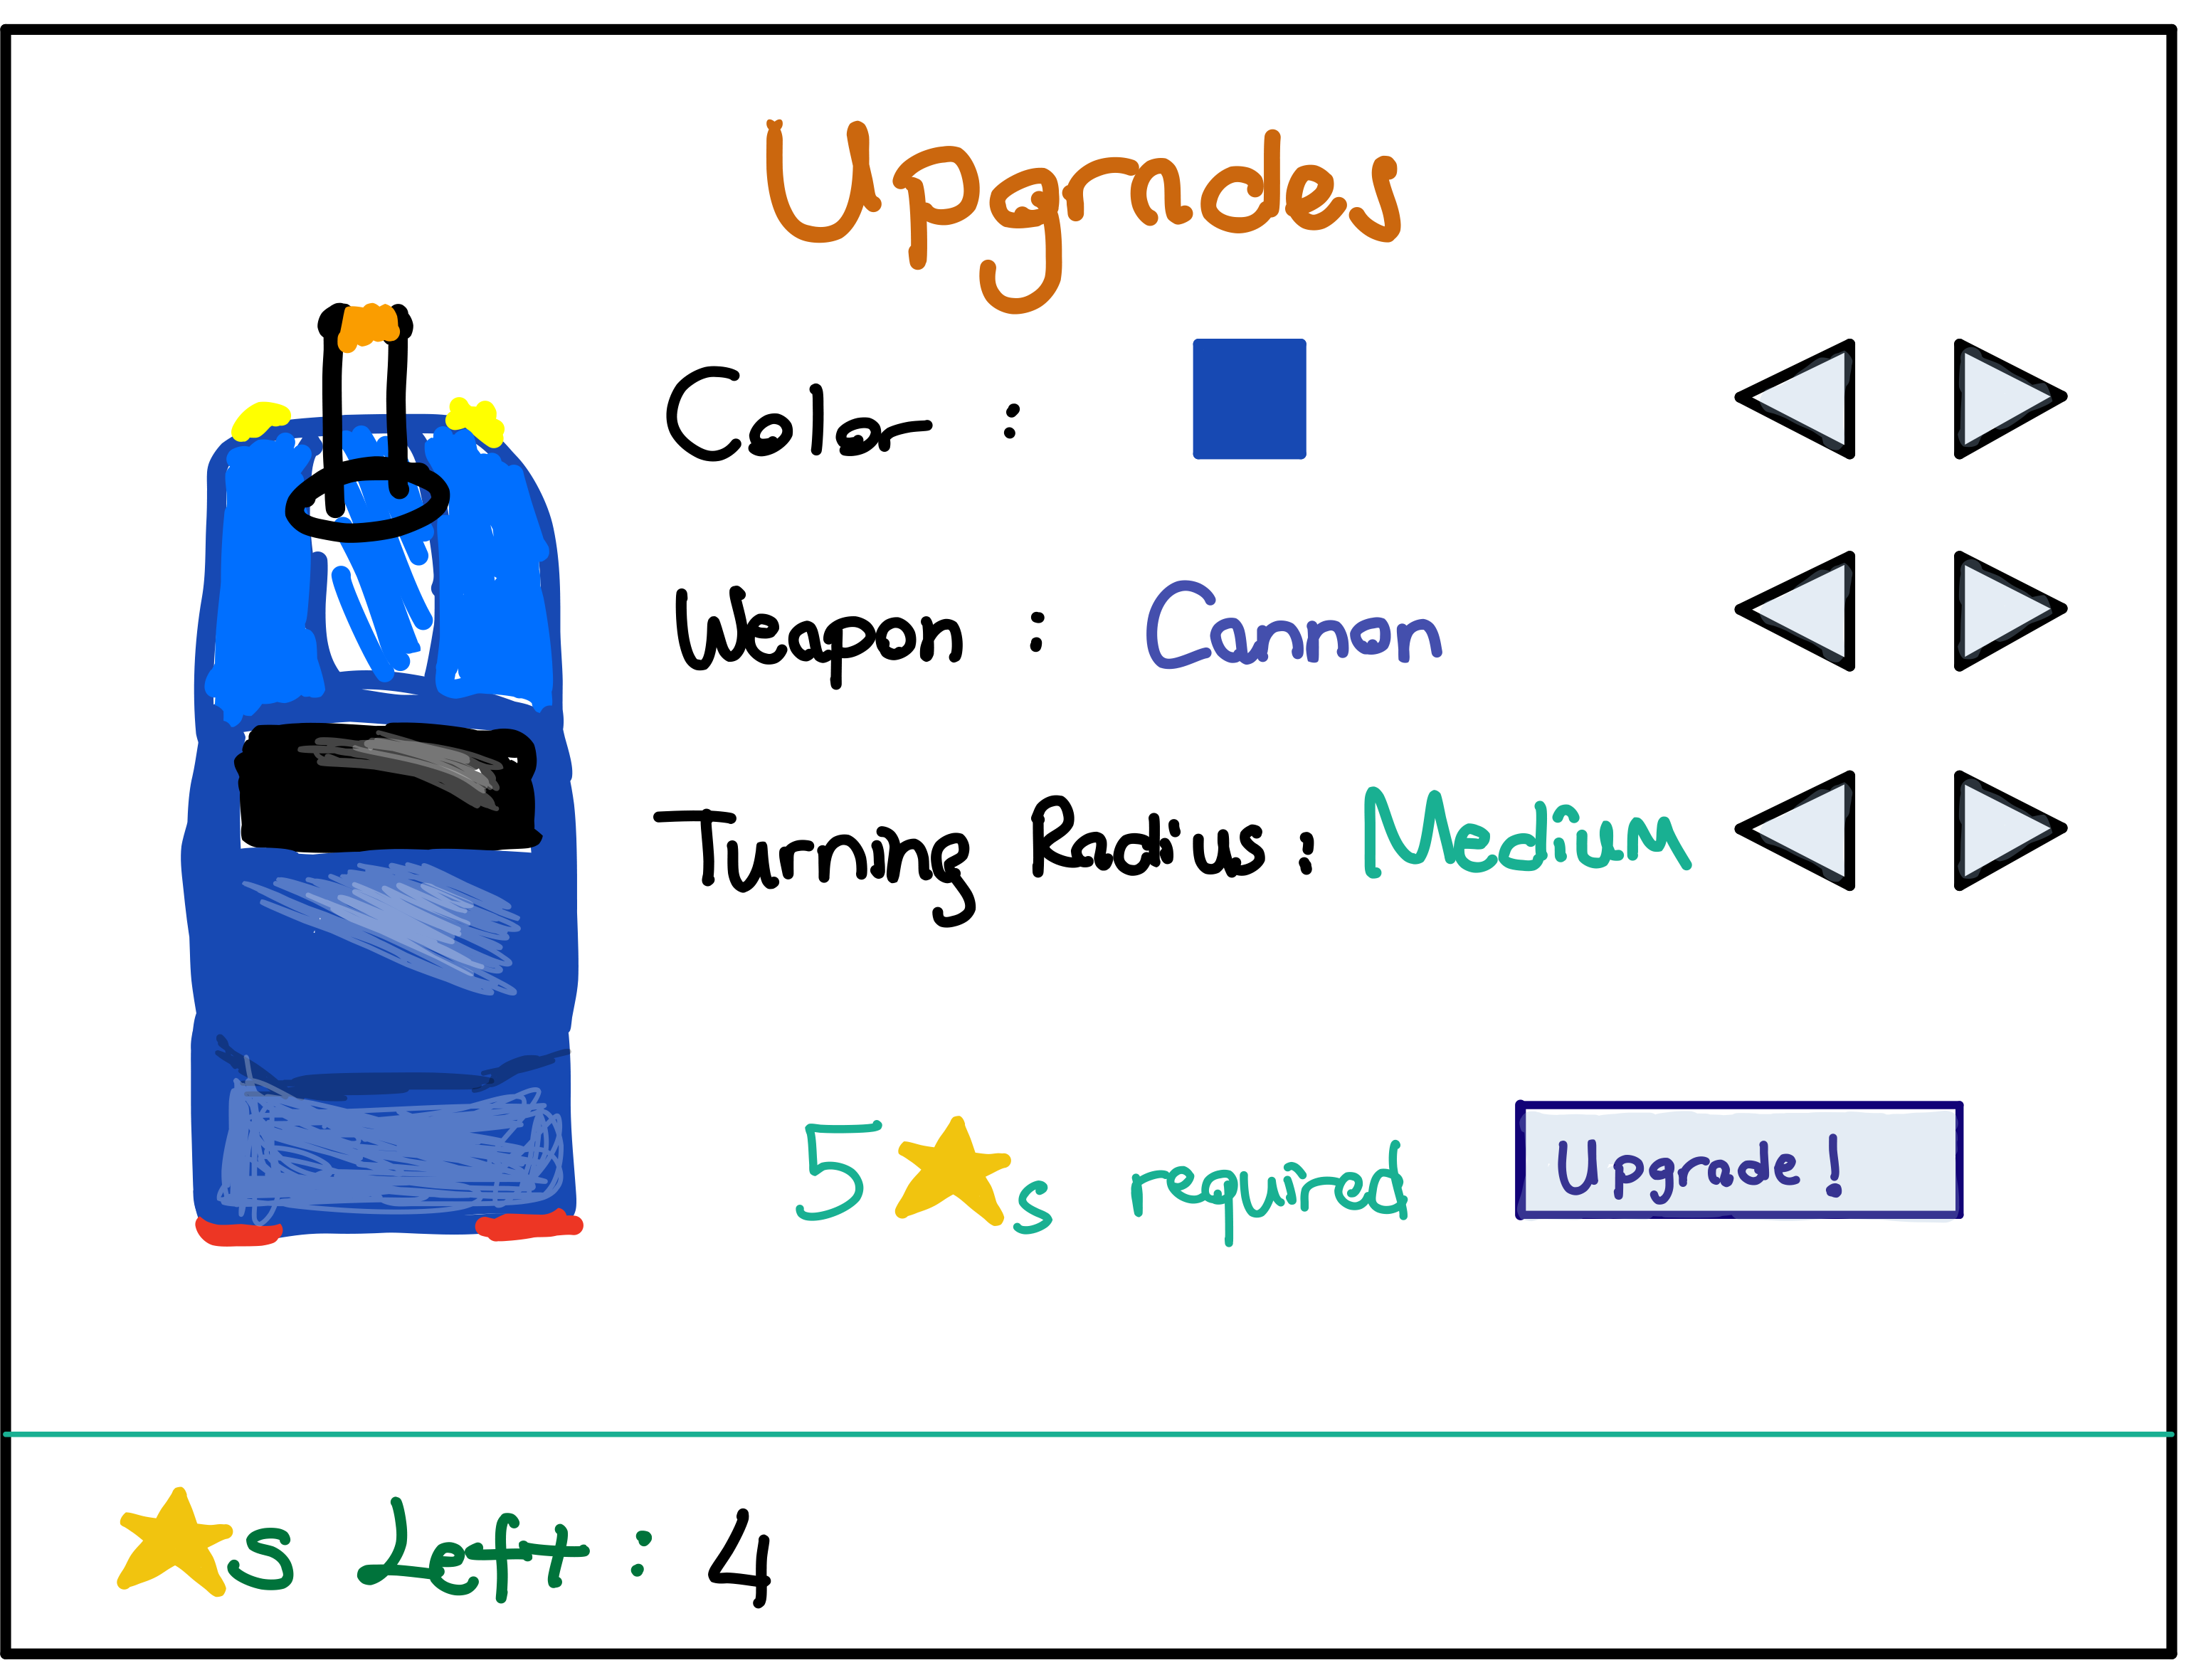 Upgrades
Color :
Weapon : Cannon
Turning Radius : Medium
5 ⭐s required
Upgrade!
⭐s Left : 4